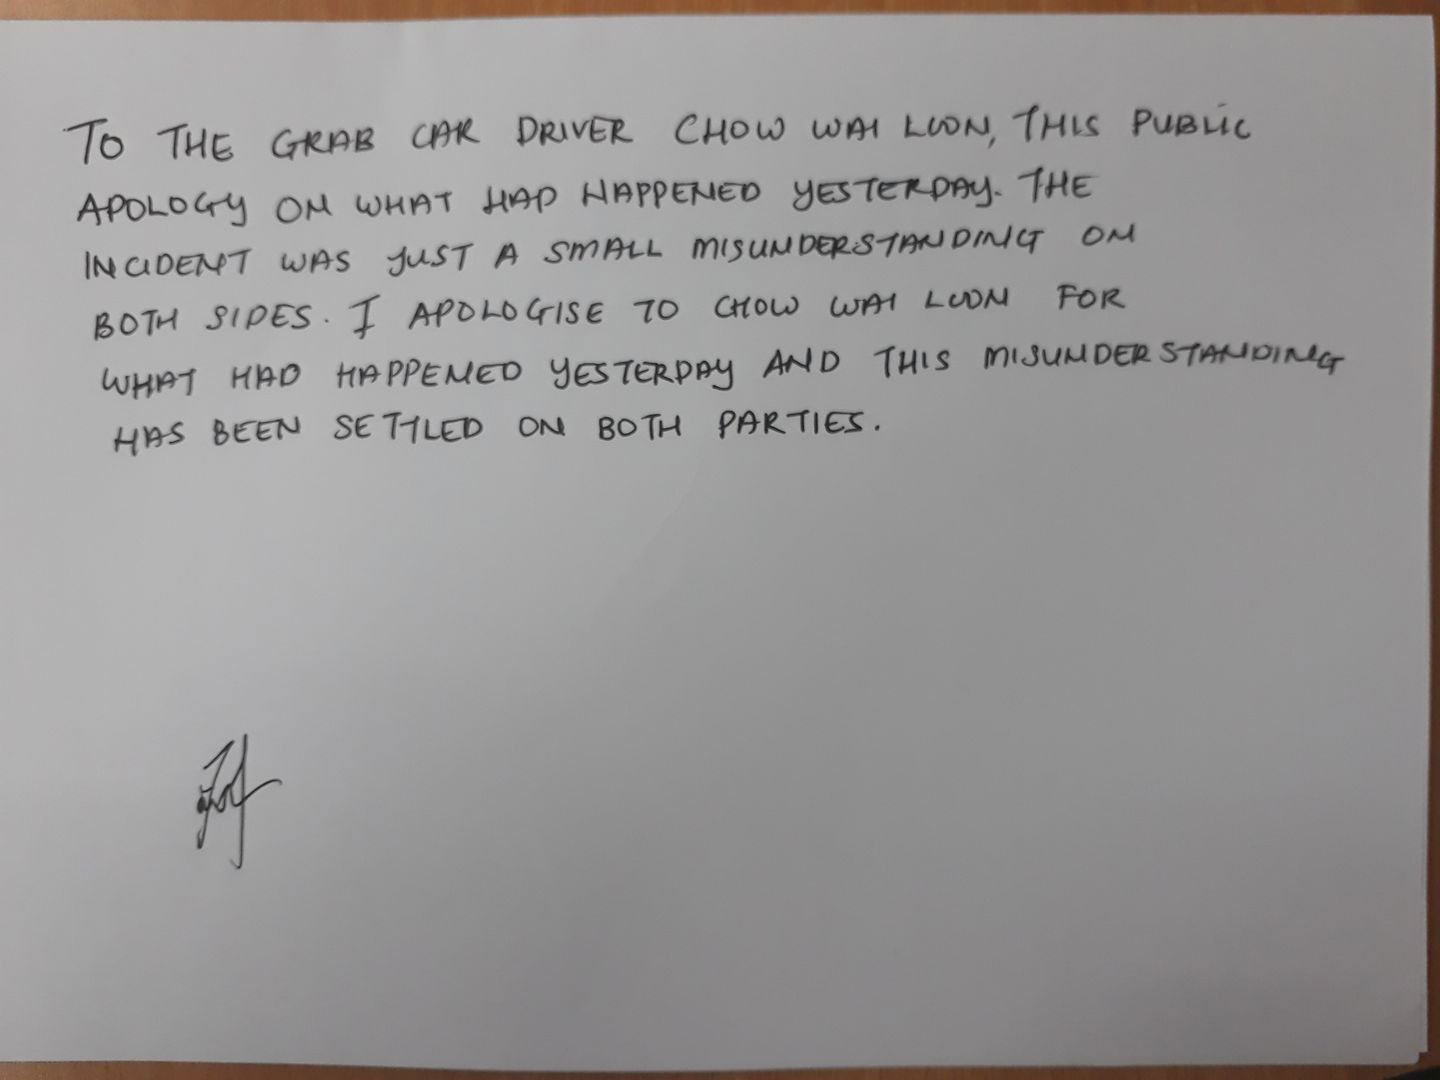 TO THE GRAB CAR DRIVER CHOW WAI LOON, THIS PUBLIC
APOLOGY ON WHAT HAD HAPPENED YESTERDAY. THE
INCIDENT WAS JUST A SMALL MISUNDERSTANDING ON
BOTH SIDES. I APOLOGISE TO CHOW WAI LOON FOR
WHAT HAD HAPPENED YESTERDAY AND THIS MISUNDERSTANDING
HAS BEEN SETTLED ON BOTH PARTIES.